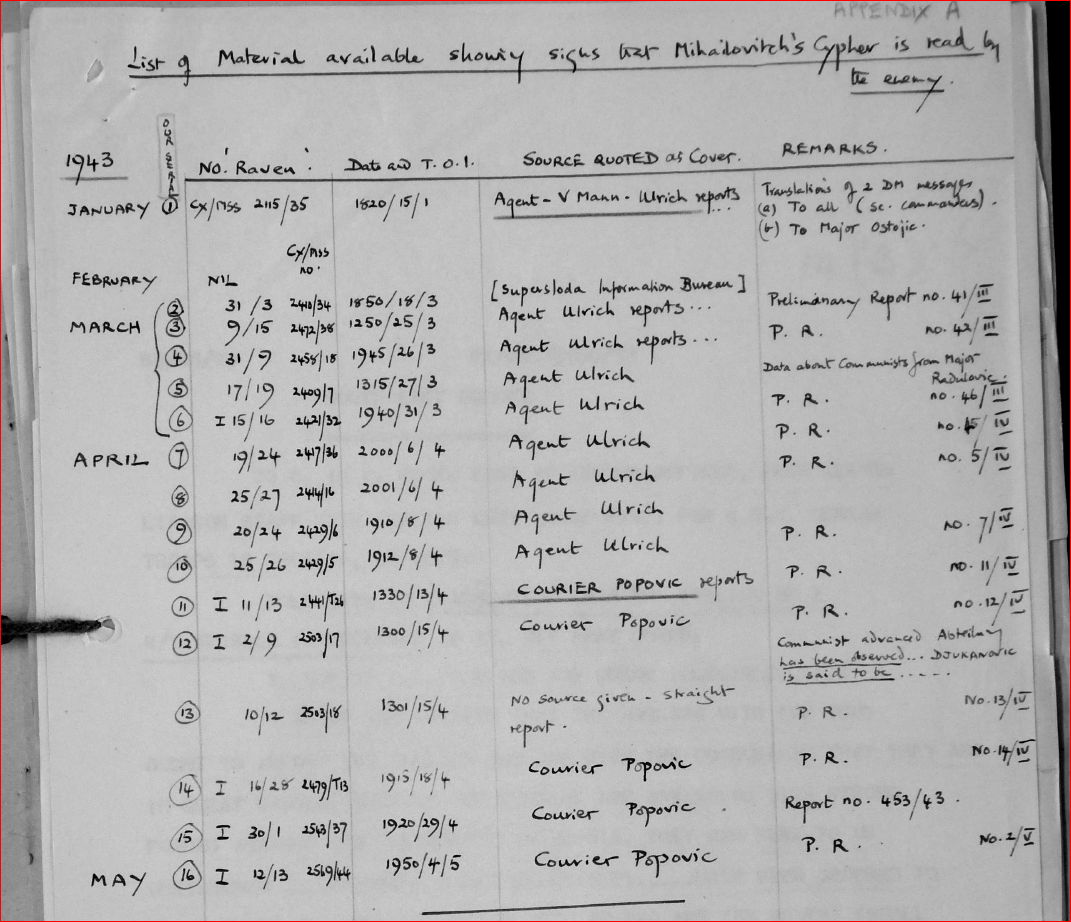 APPENDIX A
List of Material available showing signs that Mihailovitch's Cypher is read by
the enemy.
1943 OUR SERIAL No. 'Raven'. Date and T.O.I. SOURCE QUOTED as Cover. REMARKS.
JANUARY 1 CX/MSS 2115/35 1820/15/1 Agent - V Mann - Ulrich reports... Translations of 2 DM messages
(a) To all (sc. commanders).
(b) To Major Ostojic.
CX/MSS
no.
FEBRUARY NIL
[Supersloda Information Bureau]
MARCH 2 31/3 2410/34 1850/18/3 Agent Ulrich reports... Preliminary Report no. 41/III
3 9/15 2472/38 1250/25/3 Agent Ulrich reports... P.R. no. 42/III
4 31/9 2458/18 1945/26/3 Agent Ulrich Data about Communists from Major
Radulovic.
5 17/19 2409/7 1315/27/3 Agent Ulrich P.R. no. 46/III
6 I 15/16 2421/32 1940/31/3 Agent Ulrich P.R. no. /IV
APRIL 7 19/24 2417/36 2000/6/4 Agent Ulrich P.R. no. 5/IV
8 25/27 2414/16 2001/6/4 Agent Ulrich
9 20/24 2429/6 1910/8/4 Agent Ulrich P.R. no. 7/IV
10 25/26 2429/5 1912/8/4 Agent Ulrich P.R. no. 11/IV
11 I 11/13 2441/T26 1330/13/4 COURIER POPOVIC reports P.R. no. 12/IV
12 I 2/9 2503/17 1300/15/4 Courier Popovic Communist advanced Abteilung
has been observed... DJUKANOVIC
is said to be .....
13 10/12 2503/18 1301/15/4 No source given - straight
report. P.R. No. 13/IV
14 I 16/28 2479/T13 1915/18/4 Courier Popovic P.R. No. 14/IV
15 I 30/1 2543/37 1920/29/4 Courier Popovic. Report no. 453/43.
MAY 16 I 12/13 2569/44 1950/4/5 Courier Popovic P.R. No. 2/V